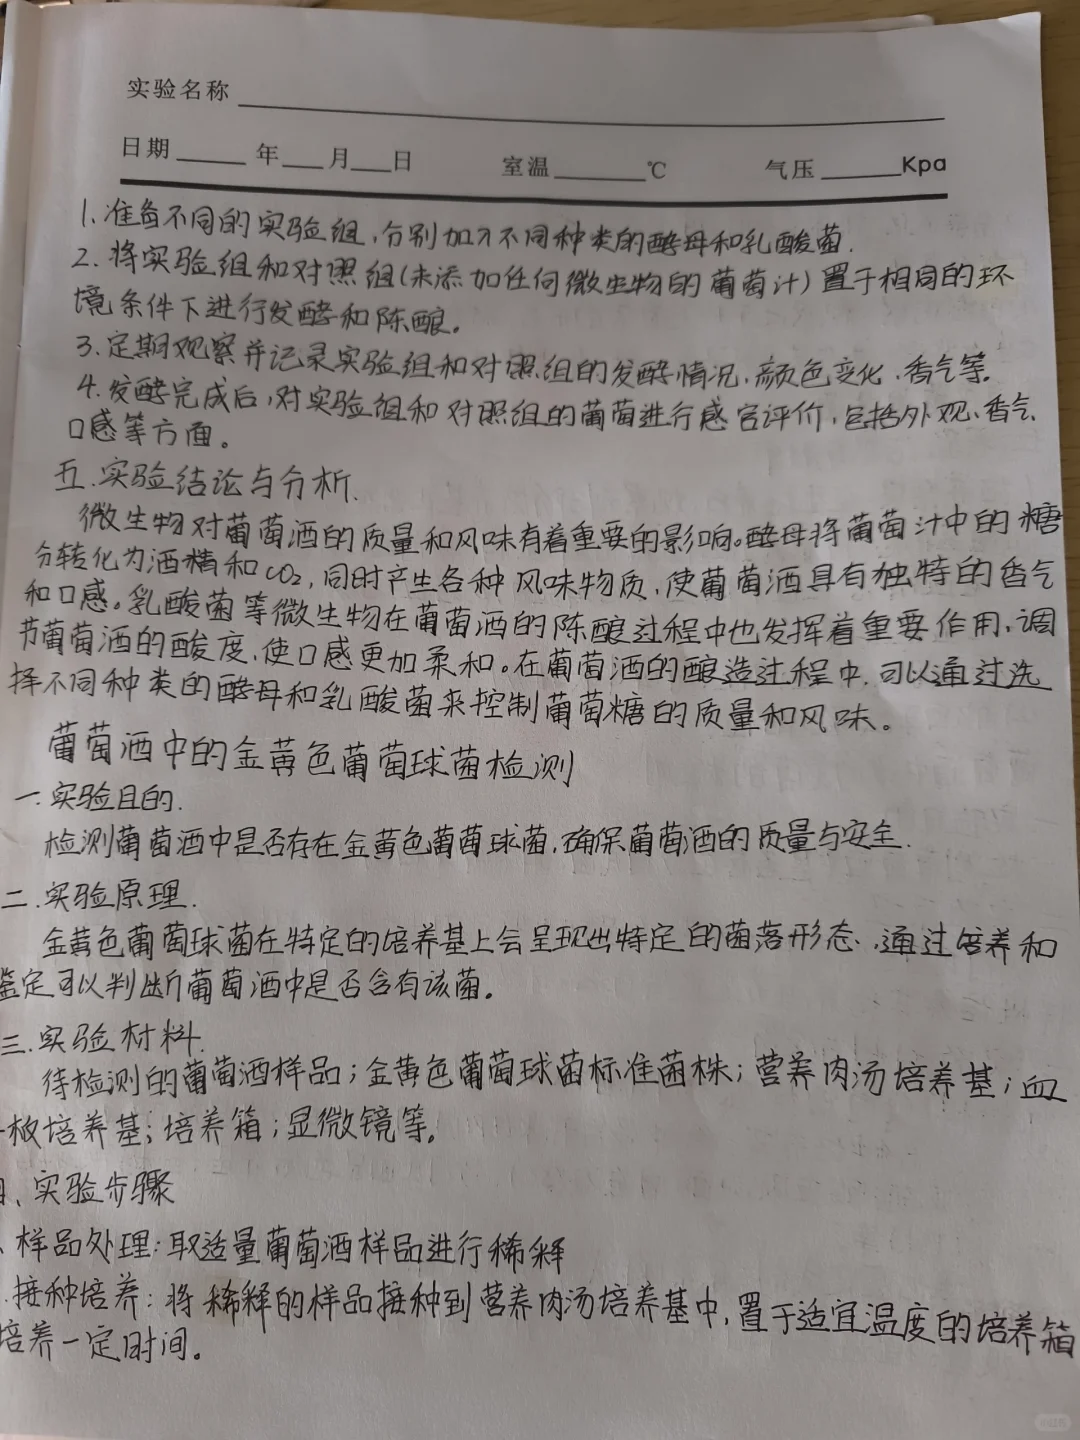 实验名称
日期 年 月 日 室温 ℃ 气压 Kpa
1.准备不同的实验组,分别加入不同种类的酵母和乳酸菌.
2.将实验组和对照组(未添加任何微生物的葡萄汁)置于相同的环
境条件下进行发酵和陈酿。
3.定期观察并记录实验组和对照组的发酵情况、颜色变化、香气等.
4.发酵完成后,对实验组和对照组的葡萄进行感官评价,包括外观、香气、
口感等方面。
五.实验结论与分析.
微生物对葡萄酒的质量和风味有着重要的影响。酵母将葡萄汁中的糖
分转化为酒精和CO2,同时产生各种风味物质,使葡萄酒具有独特的香气
和口感。乳酸菌等微生物在葡萄酒的陈酿过程中也发挥着重要作用,调
节葡萄酒的酸度,使口感更加柔和。在葡萄酒的酿造过程中,可以通过选
择不同种类的酵母和乳酸菌来控制葡萄糖的质量和风味。
葡萄酒中的金黄色葡萄球菌检测
一.实验目的.
检测葡萄酒中是否存在金黄色葡萄球菌,确保葡萄酒的质量与安全.
二.实验原理.
金黄色葡萄球菌在特定的培养基上会呈现出特定的菌落形态,通过培养和
鉴定可以判断葡萄酒中是否含有该菌。
三.实验材料.
待检测的葡萄酒样品;金黄色葡萄球菌标准菌株;营养肉汤培养基;血
板培养基;培养箱;显微镜等。
、实验步骤
、样品处理:取适量葡萄酒样品进行稀释
.接种培养:将稀释的样品接种到营养肉汤培养基中,置于适宜温度的培养箱
培养一定时间。